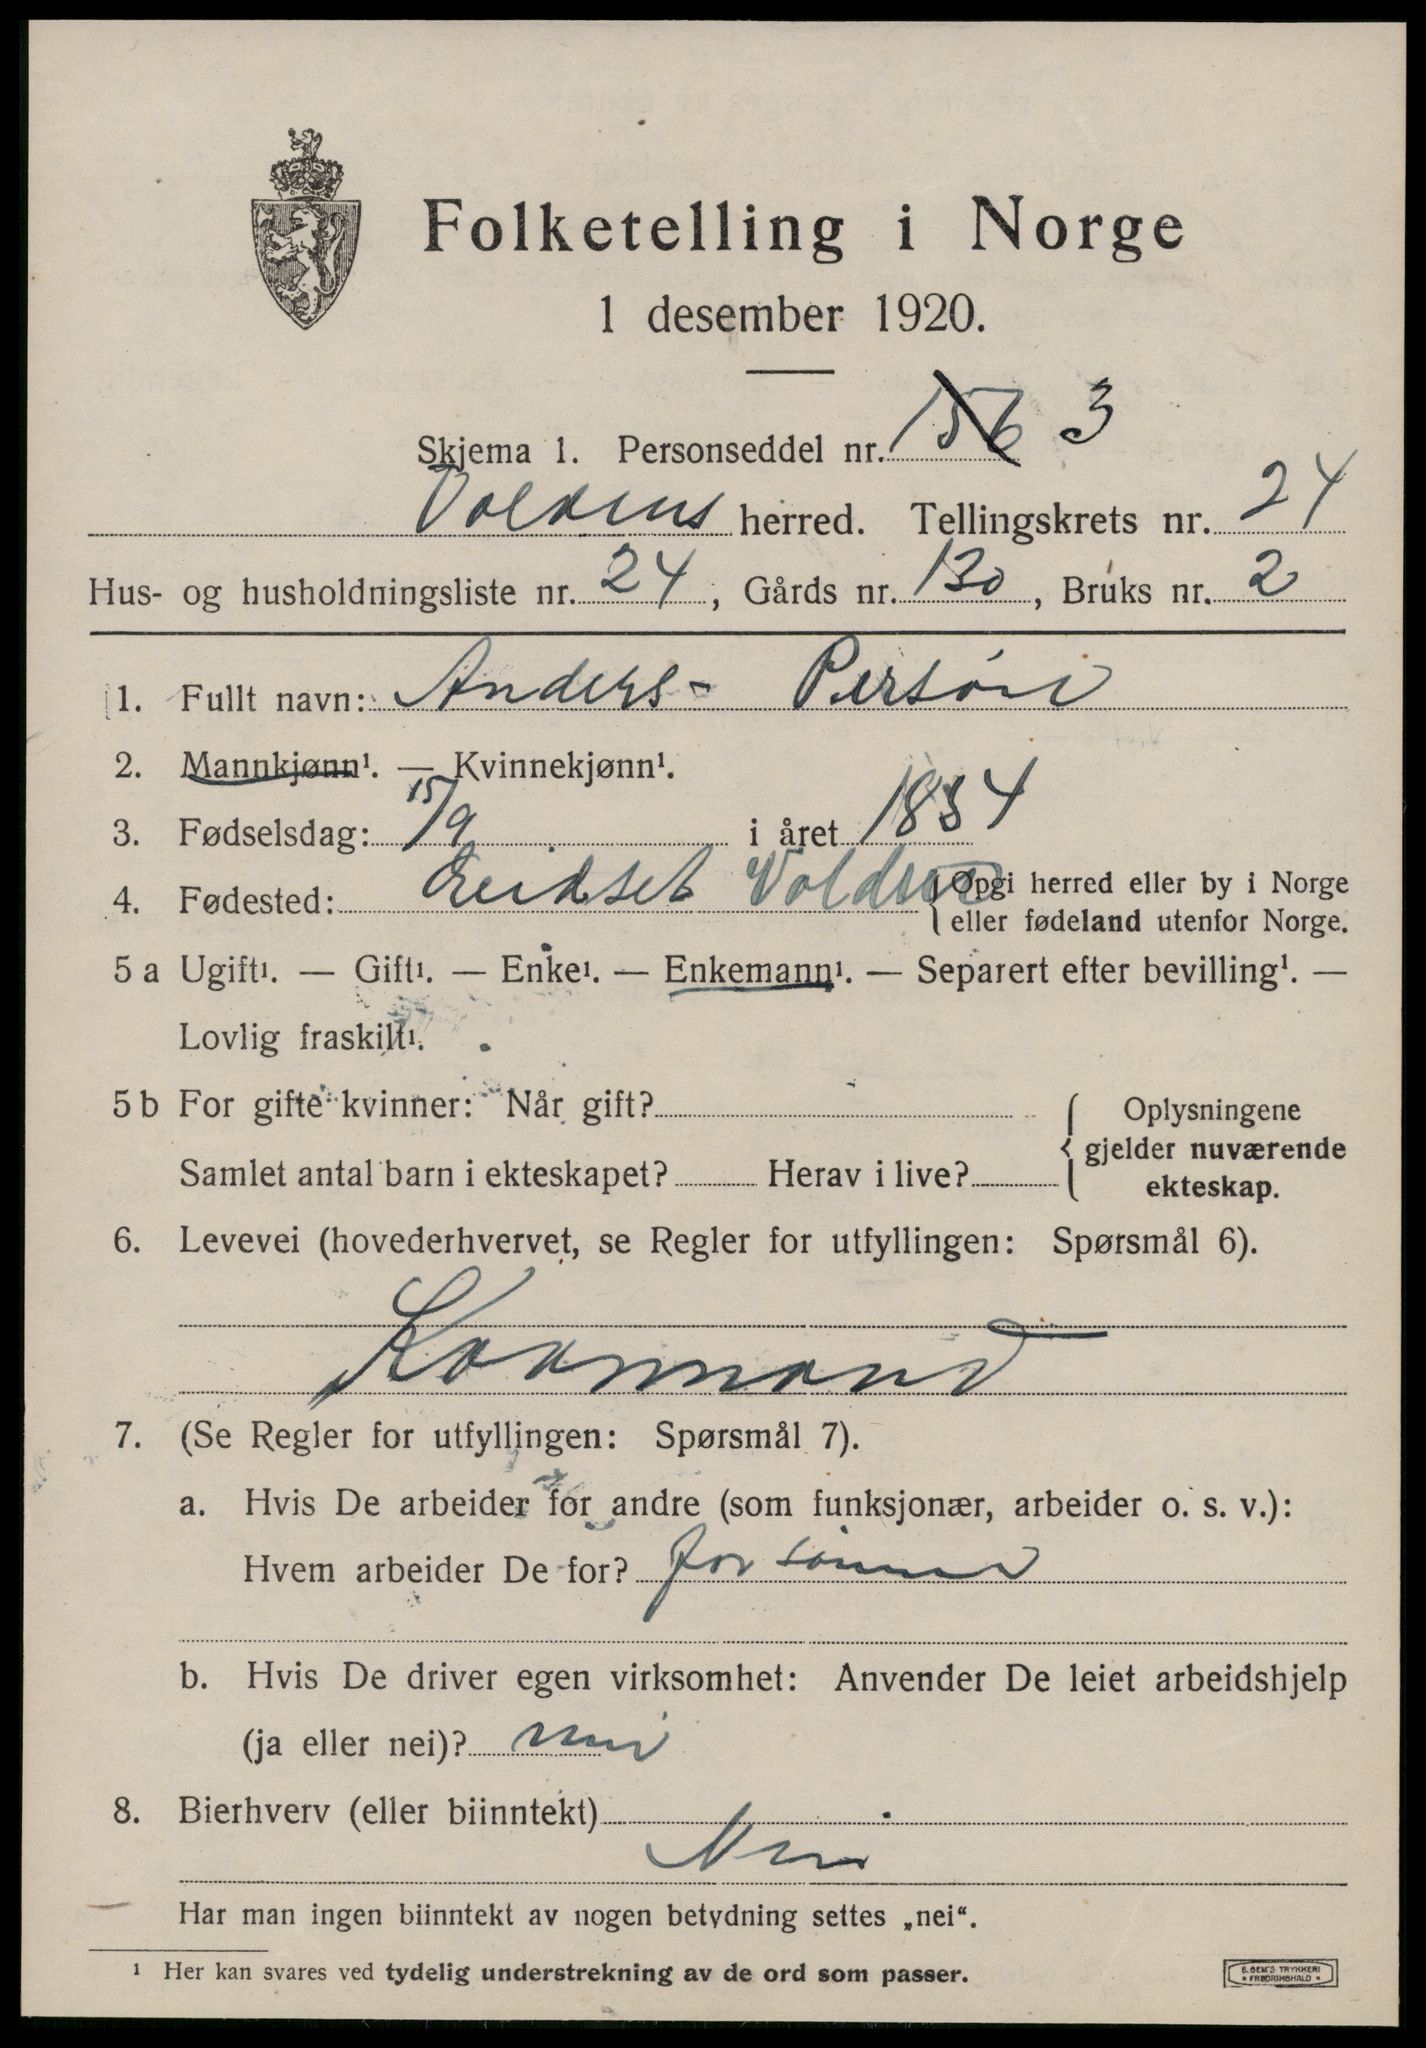 Folketelling i Norge
1 desember 1920.
Skjema 1. Personseddel nr. 156 3
Voldens herred. Tellingskrets nr. 24
Hus- og husholdningsliste nr. 24, Gårds nr. 130, Bruks nr. 2
1. Fullt navn: Anders Persøn
2. Mannkjønn¹. — Kvinnekjønn¹.
3. Fødselsdag: 15/9 i året 1834
4. Fødested: Eidset Volden {Opgi herred eller by i Norge
eller fødeland utenfor Norge.
5 a Ugift¹. — Gift¹. — Enke¹. — Enkemann¹. — Separert efter bevilling¹. —
Lovlig fraskilt¹.
5 b For gifte kvinner: Når gift?
Samlet antal barn i ekteskapet? Herav i live? { Oplysningene
gjelder nuværende
ekteskap.
6. Levevei (hovederhvervet, se Regler for utfyllingen: Spørsmål 6).
Kaarmand
7. (Se Regler for utfyllingen: Spørsmål 7).
a. Hvis De arbeider for andre (som funksjonær, arbeider o. s. v.):
Hvem arbeider De for? for sønnen
b. Hvis De driver egen virksomhet: Anvender De leiet arbeidshjelp
(ja eller nei)? nei
8. Bierhverv (eller biinntekt)
Nei
Har man ingen biinntekt av nogen betydning settes „nei“.
¹ Her kan svares ved tydelig understrekning av de ord som passer.
E. SEM'S TRYKKERI
• FREDRIKSHALD •